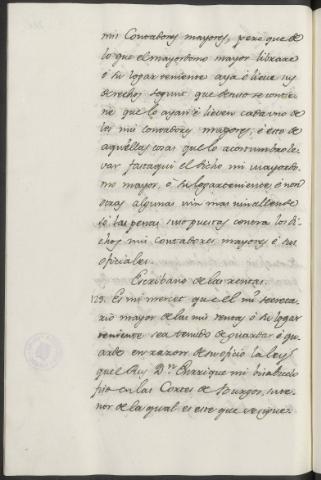 mis Contadores mayores, pero que de
lo que el mayordomo mayor librare
ó su logar teniente aya é lieve sus
derechos segunt que de suso se contie-
ne que lo ayan é lieven cada uno de
los mis contadores mayores, é esto de
aquellas cosas que lo acostumbró le-
var fasta aqui el dicho mi mayordo-
mo mayor, ó su logarteniente, é non
otras algunas, nin mas nin allende
só las penas suso puestas contra los di-
chos mis Contadores mayores é sus
oficiales.
Escribano de las rentas.
123. Es mi merced que el mi escriba-
rio mayor de las mis rentas ó su logar
teniente sea tenido de guardar é gu-
arde en razon de su oficio la ley
quel Rey Dn. Enrrique mi bisabuelo
fizo en las Cortes de Burgos, su te-
nor de la qual es este que se sigue.